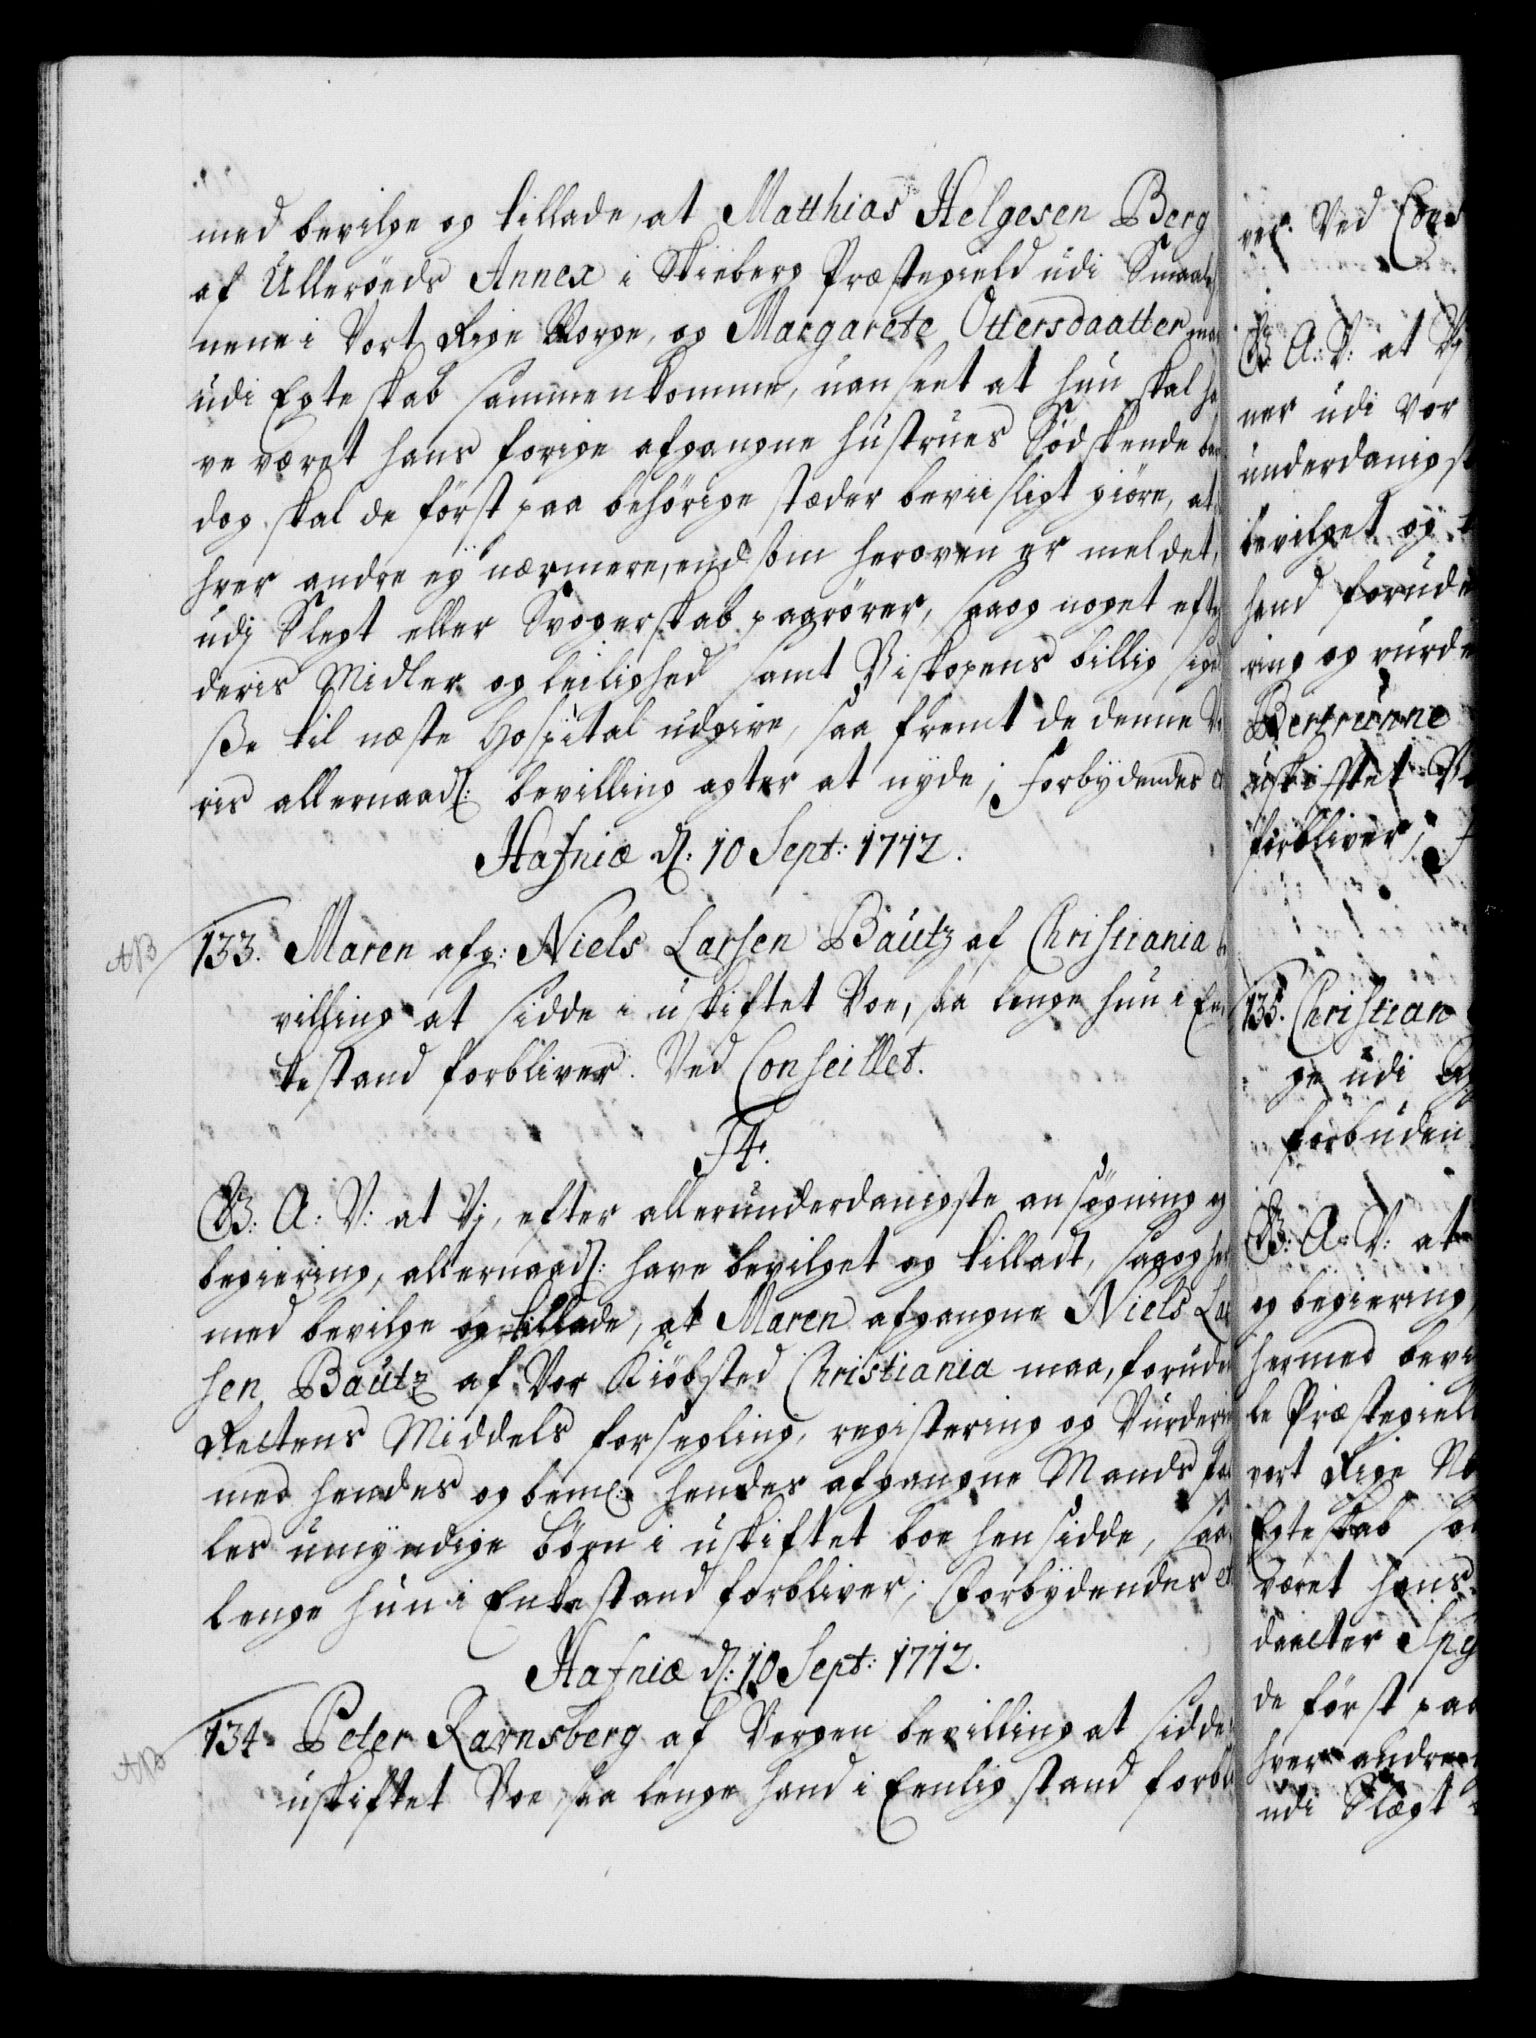 med bevilge og tillade, at Matthias Helgesen Berg
af Ullerøeds Annex i Skieberg Præstegield udi Smaale
nene i Vort Rige Norge, og Margarete Ottersdaatter maa
udi Egteskab sammenkomme, uanseet at hun skal ha
ve været hans forige afgangne hustrues Sødskende
dog skal de først paa behørige stæder beviisligt giøre, at
hver andre ey nærmere, end som heroven er meldet,
udj Slegt eller Svogerskab paarører, saa og noget efter
deris Midler og leilighed samt Biskopens billig sigel
ße til næste Hospital udgive, saa fremt de denne Vo
ris allernaad: bevilling agter at nyde; forbydendes
Hafniæ d: 10 Sept: 1712.
NB
133. Maren afg: Niels Larsen Bautz af Christiania be
villing at sidde i uskiftet Boe, saa lenge hun i En
kestand forbliver. Ved Conseillet.
F4.
G: A: V: at Vj, efter allerunderdanigste ansøgning og
begiering, allernaad: have bevilget og tilladt, saa og her
med bevilge og tillade, at Maren afgangne Niels Lar
sen Bautz af Vor Kiøbsted Christiania maa, foruden
Rettens Middels forsegling, registering og Vurdering
med hendes og bem: hendes afgangne Mands fæl
les umyndige børn i uskiftet boe hensidde, saa
lenge hun i Enkestand forbliver; Forbydendes
Hafniæ d: 10 Sept: 1712.
NB
134. Peter Ravnsberg af Bergen bevilling at sidde
uskiftet Boe, saa lenge hand i Eenlig stand forbli
ver. Ved Cons
G: A: V: at Vj
ner udi Vor
underdanigst
bevilget og
hand forude
ring og vurde
uskiftet
forbliver;
135. Christian
ge udi
forbuden
G: A: V: at
og begiering
hermed bevi
le Præstegield
vort Rige No
Egteskab sa
været hans
daatter
de først paa
hver andre
udi Slægt